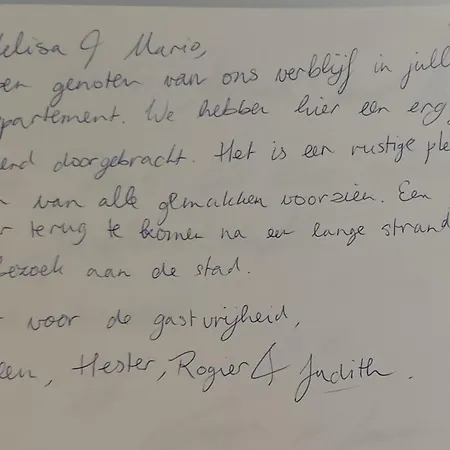 elisa & Mario,
en genoten van ons verblijf in jull
partement. We hebben hier een erg
end doorgebracht. Het is een rustige ple
n van alle gemakken voorzien. Een
r terug te komen na een lange strand
bezoek aan de stad.
voor de gastvrijheid,
een, Hester, Rogier & Judith.